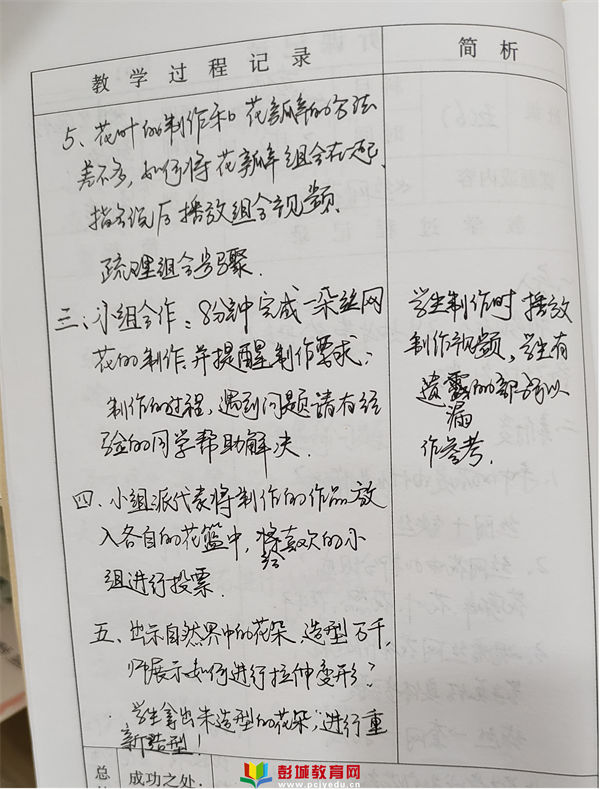 教学过程记录
简析
5、花叶的制作和花瓣的方法
差不多,如何将花瓣组合在一起,
指名说后播放组合视频、
疏理组合步骤.
三、小组合作:8分钟完成一朵丝网
花的制作,并提醒制作要求:
制作的过程,遇到问题请有经
验的同学帮助解决.
四、小组派代表将制作的作品放
入各自的花篮中,给喜欢的小
组进行投票.
五、出示自然界中的花朵,造型万千,
师展示如何进行拉伸变形?
学生拿出未造型的花朵,进行重
新造型!
学生制作时播放
制作视频,学生有
遗漏的部分可以
作参考.
总
成功之处:
彭城教育网
www.pcjyedu.cn